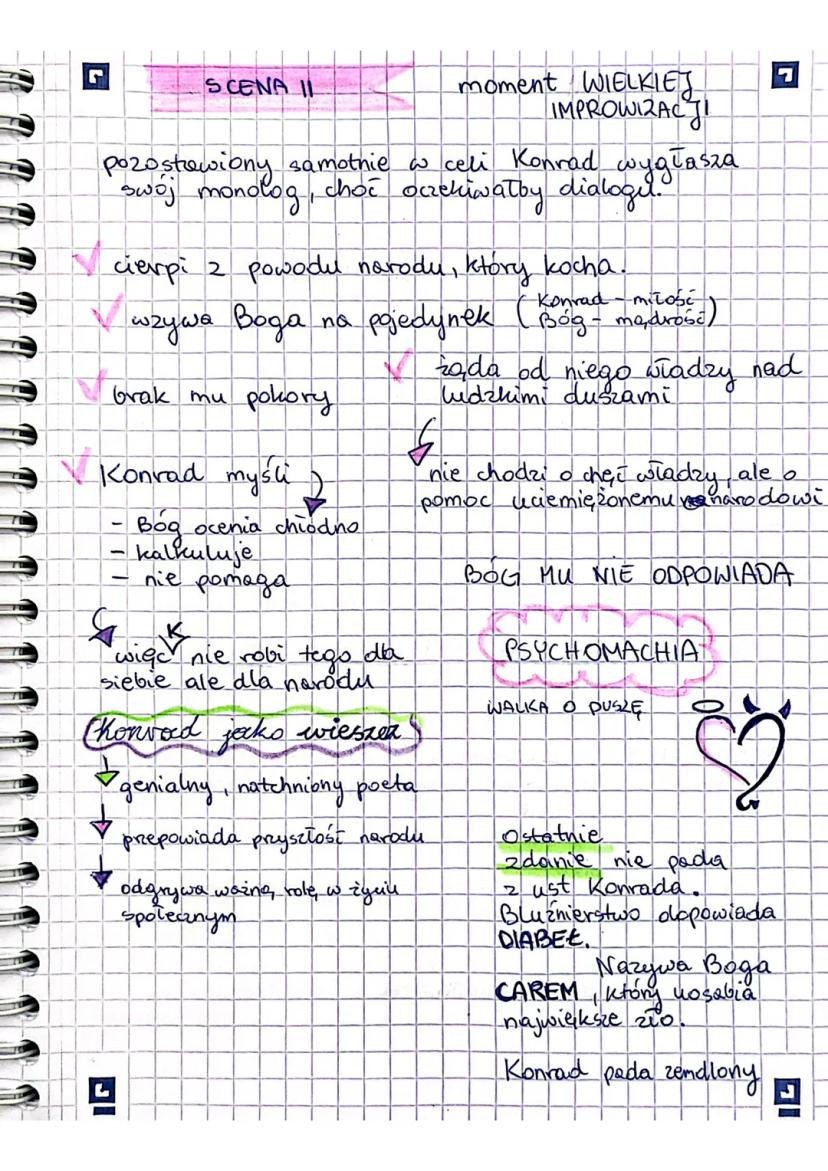 SCENA II
moment WIELKIEJ
IMPROWIZACJI
pozostawiony samotnie w celi Konrad wygłasza
swój monolog, choć oczekiwałby dialogu.
cierpi z powodu narodu, który kocha.
wzywa Boga na pojedynek (Konrad - miłość
Bóg - mądrość)
brak mu pokory
żąda od niego władzy nad
ludzkimi duszami
nie chodzi o chęć władzy, ale o
pomoc uciemiężonemu narodowi
Konrad myśli
- Bóg ocenia chłodno
- kalkuluje
- nie pomaga
BÓG MU NIE ODPOWIADA
więc K nie robi tego dla
siebie ale dla narodu
PSYCHOMACHIA
WALKA O DUSZĘ
Konrad jako wieszcz
genialny, natchniony poeta
przepowiada przyszłość narodu
odgrywa ważną rolę w życiu
społecznym
Ostatnie
zdanie nie pada
z ust Konrada.
Bluźnierstwo dopowiada
DIABEŁ.
Nazywa Boga
CAREM, który uosabia
największe zło.
Konrad pada zemdlony